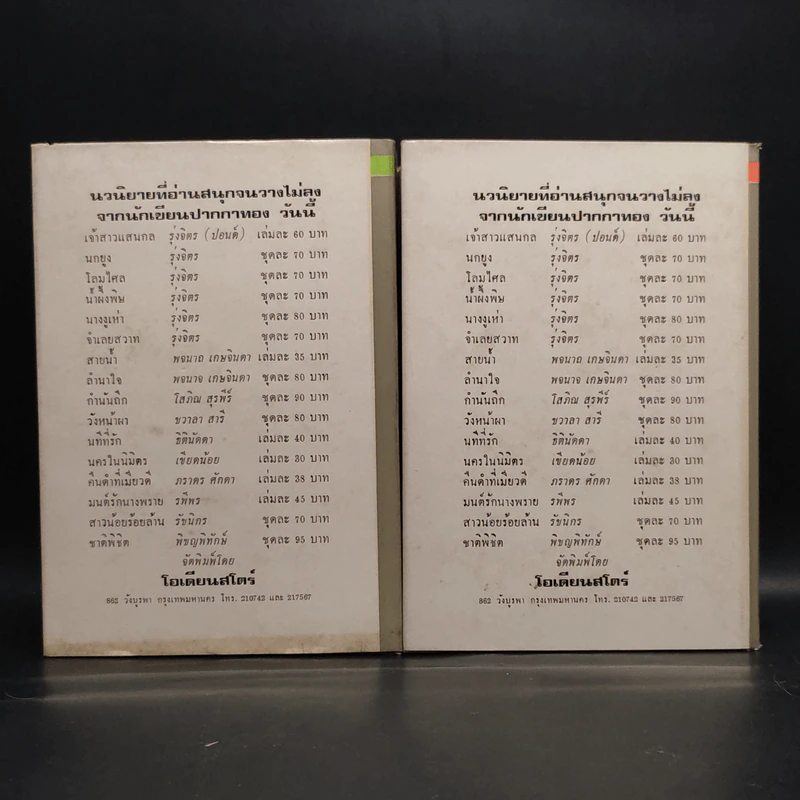 นวนิยายที่อ่านสนุกจนวางไม่ลง
จากนักเขียนปากกาทอง วันนี้
เจ้าสาวแสนกล รุ่งจิตร (ปอนด์) เล่มละ 60 บาท
นกยูง รุ่งจิตร ชุดละ 70 บาท
โลมไศล รุ่งจิตร ชุดละ 70 บาท
น้ำผึ้งพิษ รุ่งจิตร ชุดละ 70 บาท
นางงูเห่า รุ่งจิตร ชุดละ 80 บาท
จำเลยสวาท รุ่งจิตร ชุดละ 70 บาท
สายน้ำ พจนาถ เกษจินดา เล่มละ 35 บาท
ลำนาใจ พจนาจ เกษจินดา ชุดละ 80 บาท
กำนันถึก โสภิณ สุรพีร์ ชุดละ 90 บาท
วังหน้าผา ชวาลา สารี ชุดละ 80 บาท
นทีที่รัก ธิตินัดดา เล่มละ 40 บาท
นครในนิมิตร เขียดน้อย เล่มละ 30 บาท
คืนดำที่เมียวดี ภราดร ศักดา เล่มละ 38 บาท
มนต์รักนางพราย รพีพร เล่มละ 45 บาท
สาวน้อยร้อยล้าน รัชนิกร ชุดละ 70 บาท
ชาติพิชิต พิชญพิทักษ์ ชุดละ 95 บาท
จัดพิมพ์โดย
โอเดียนสโตร์
862 วังบูรพา กรุงเทพมหานคร โทร. 210742 และ 217567
นวนิยายที่อ่านสนุกจนวางไม่ลง
จากนักเขียนปากกาทอง วันนี้
เจ้าสาวแสนกล รุ่งจิตร (ปอนด์) เล่มละ 60 บาท
นกยูง รุ่งจิตร ชุดละ 70 บาท
โลมไศล รุ่งจิตร ชุดละ 70 บาท
น้ำผึ้งพิษ รุ่งจิตร ชุดละ 70 บาท
นางงูเห่า รุ่งจิตร ชุดละ 80 บาท
จำเลยสวาท รุ่งจิตร ชุดละ 70 บาท
สายน้ำ พจนาถ เกษจินดา เล่มละ 35 บาท
ลำนาใจ พจนาจ เกษจินดา ชุดละ 80 บาท
กำนันถึก โสภิณ สุรพีร์ ชุดละ 90 บาท
วังหน้าผา ชวาลา สารี ชุดละ 80 บาท
นทีที่รัก ธิตินัดดา เล่มละ 40 บาท
นครในนิมิตร เขียดน้อย เล่มละ 30 บาท
คืนดำที่เมียวดี ภราดร ศักดา เล่มละ 38 บาท
มนต์รักนางพราย รพีพร เล่มละ 45 บาท
สาวน้อยร้อยล้าน รัชนิกร ชุดละ 70 บาท
ชาติพิชิต พิชญพิทักษ์ ชุดละ 95 บาท
จัดพิมพ์โดย
โอเดียนสโตร์
862 วังบูรพา กรุงเทพมหานคร โทร. 210742 และ 217567